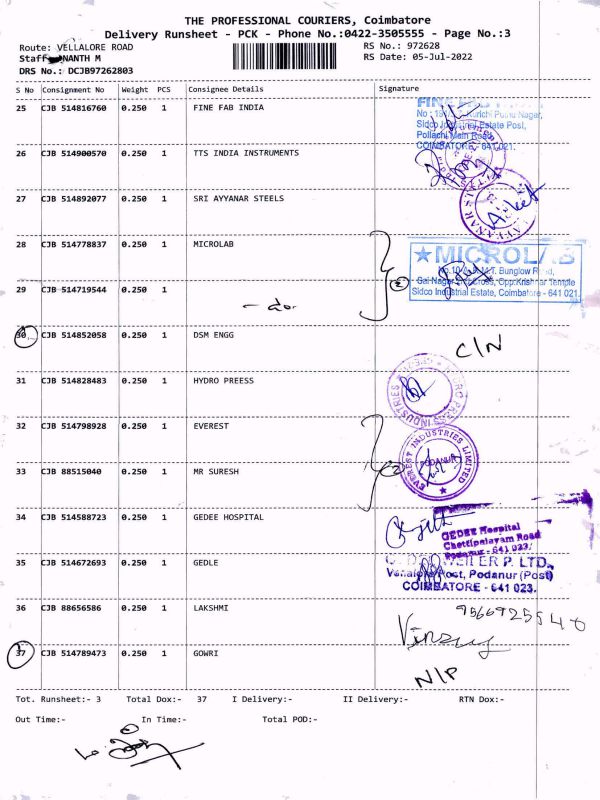 THE PROFESSIONAL COURIERS, Coimbatore
Delivery Runsheet - PCK - Phone No.:0422-3505555 - Page No.:3
Route: VELLALORE ROAD
RS No.: 972628
Staff NANTH M
RS Date: 05-Jul-2022
DRS No.: DCJB97262803
S No Consignment No Weight PCS Consignee Details Signature
25 CJB 514816760 0.250 1 FINE FAB INDIA
Sidco Industrial Estate Post,
Pollachi Main Road
COIMBATORE - 641 021.
26 CJB 514900570 0.250 1 TTS INDIA INSTRUMENTS
27 CJB 514892077 0.250 1 SRI AYYANAR STEELS
28 CJB 514778837 0.250 1 MICROLAB
★ MICROLAB
Bunglow Road,
Opp:Krishnar Temple
Sidco Industrial Estate, Coimbatore - 641 021
29 CJB 514719544 0.250 1
- do
2
30 CJB 514852058 0.250 1 DSM ENGG
C/N
31 CJB 514828483 0.250 1 HYDRO PREESS
HYDRO PRESS INDUSTRIES
32 CJB 514798928 0.250 1 EVEREST
EVEREST INDUSTRIES LIMITED
PODANUR
2
33 CJB 88515040 0.250 1 MR SURESH
34 CJB 514588723 0.250 1 GEDEE HOSPITAL
GEDEE Hospital
Chettipalayam Road
Podanur - 641 023.
35 CJB 514672693 0.250 1 GEDLE
WEILER P. LTD.,
Vellalore Post, Podanur (Post)
COIMBATORE - 641 023.
36 CJB 88656586 0.250 1 LAKSHMI
37 CJB 514789473 0.250 1 GOWRI
N/P
Tot. Runsheet:- 3 Total Dox:- 37 I Delivery:- II Delivery:- RTN Dox:-
Out Time:- In Time:- Total POD:-